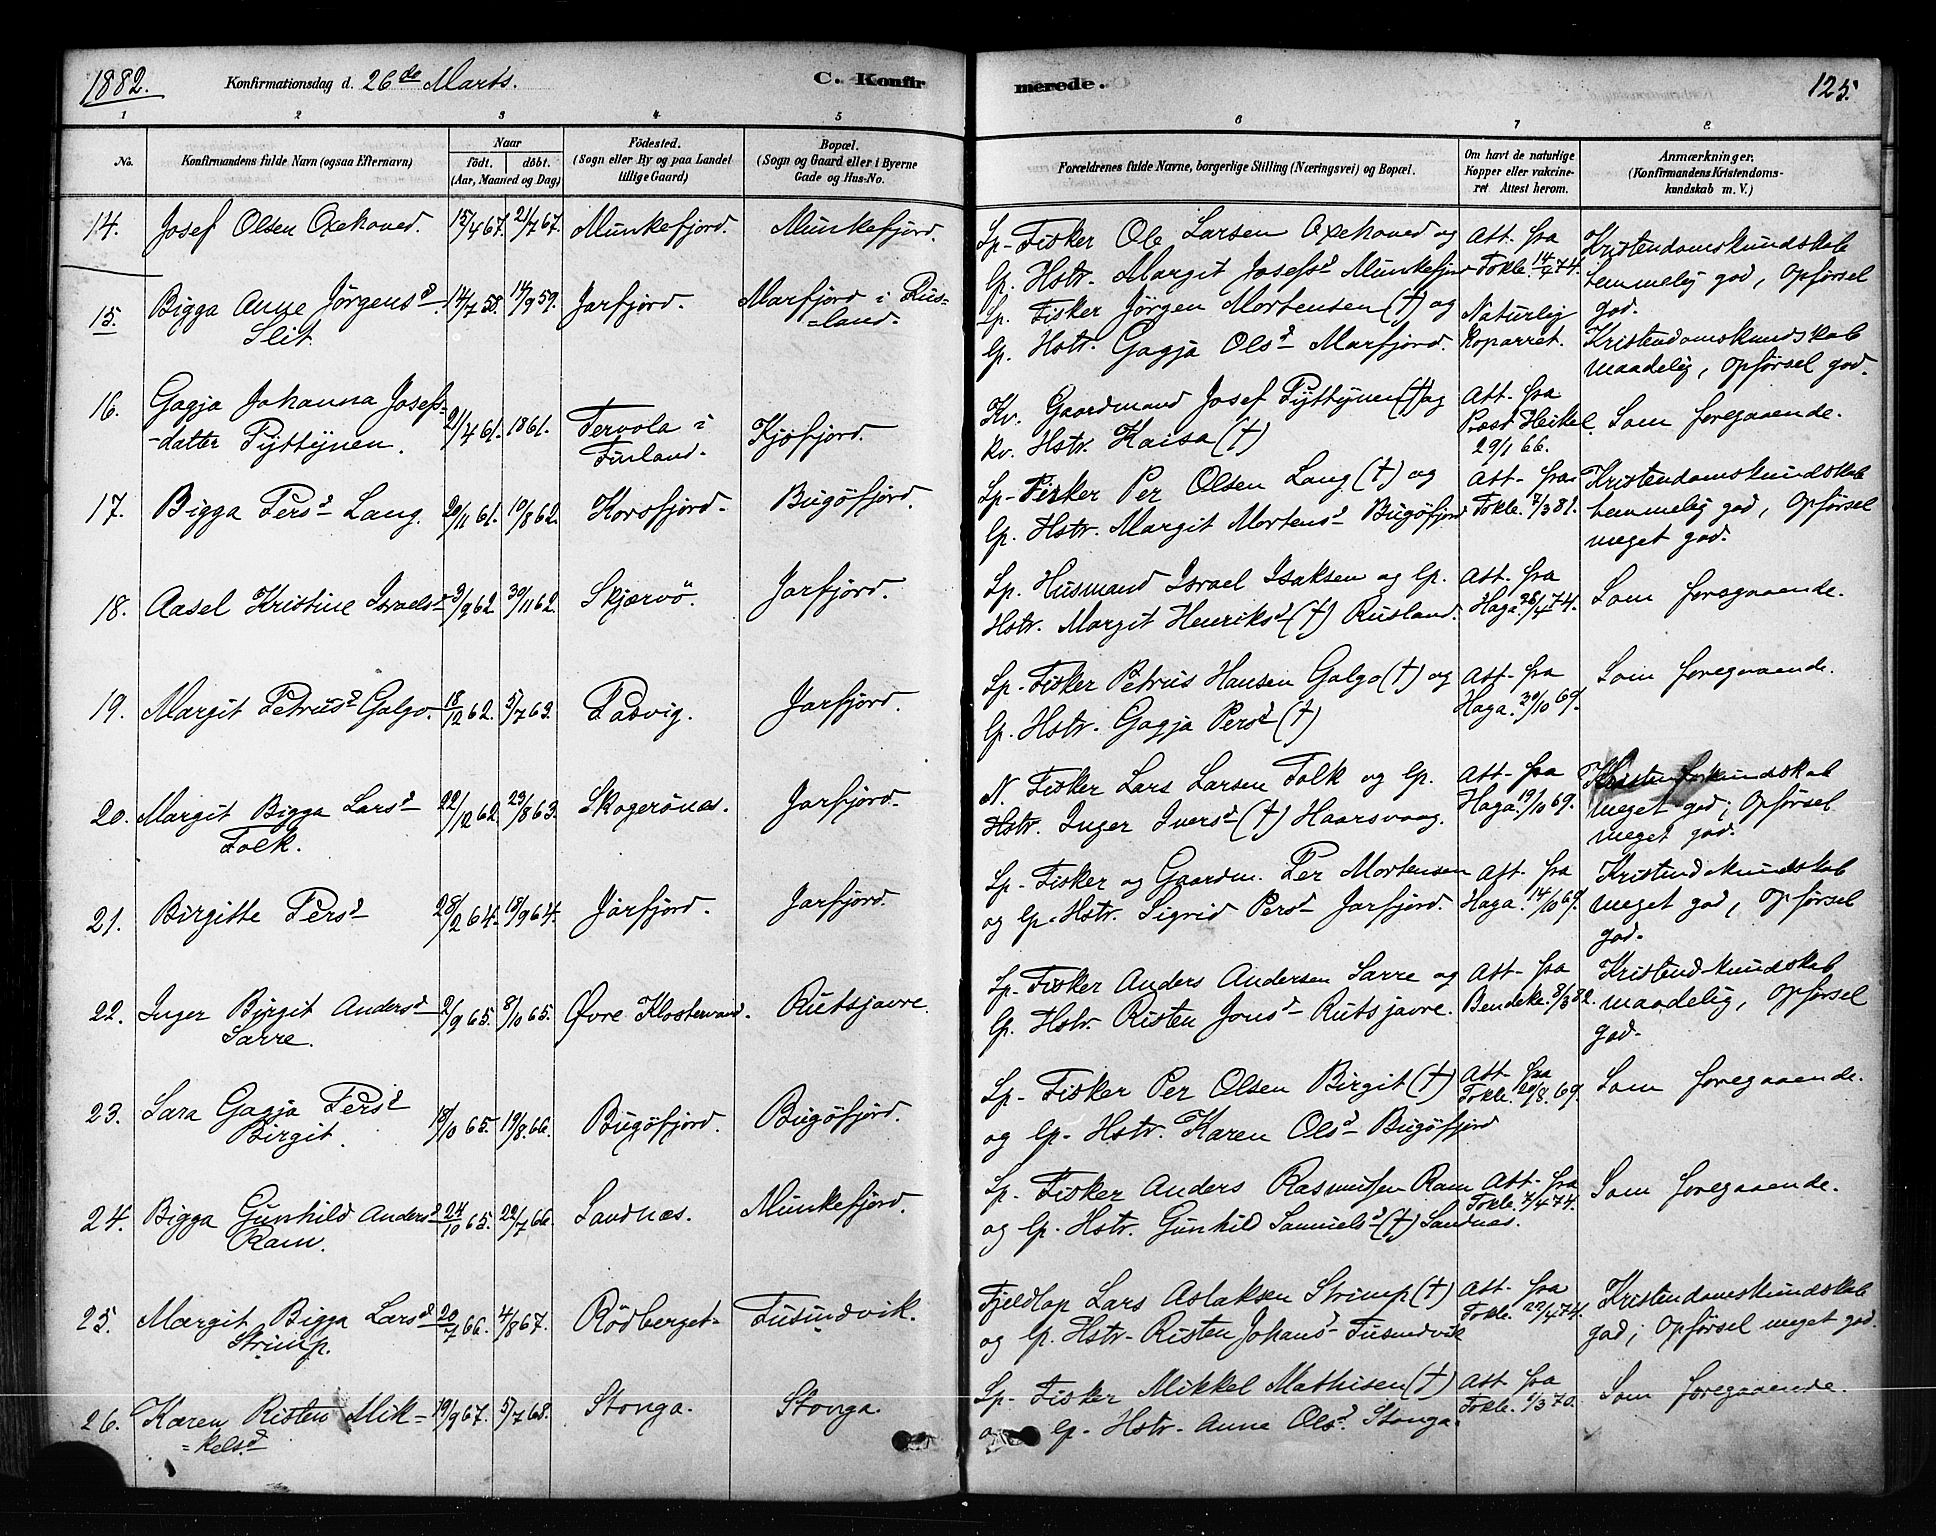 1882. Konfirmationsdag d. 26de Marts. C. Konfirmerede. 125.
1 2 3 4 5 6 7 8
No. Konfirmandens fulde Navn (ogsaa Efternavn) Naar født. døbt. (Aar, Maaned og Dag) Fødested. (Sogn eller By og paa Landet tillige Gaard) Bopæl. (Sogn og Gaard eller i Byerne Gade og Hus-No. Forældrenes fulde Navne, borgerlige Stilling (Næringsvei) og Bopæl. Om havt de naturlige Kopper eller vaccineret Attest herom. Anmærkninger. (Konfirmandens Kristendomskundskab m. V.)
14. Josef Olsen Oxehoved. 15/4 67. 21/7 67. Munkefjord. Munkefjord. Lp. Fisker Ole Larsen Oxehoved og
lp. Hstr. Margit Josefsd Munkefjord Att. fra Fokle. 14/4 74. Kristendomskundskab temmelig god, Opførsel god.
15. Bigga Anne Jörgensd. Slit. 14/7 58. 14/9 59. Jarfjord. Marfjord i Rus-
=land. Lp. Fisker Jörgen Mortensen (†) og
lp. Hstr. Gagja Olsd Marfjord. Naturlig Koparret. Kristendomskundskab
maadelig, Opførsel god.
16. Gagja Johanna Josefs-
-datter Pyttynen. 21/4 61. 1861. Tervola i
Finland. Kjöfjord. Kv. Gaardmand Josef Pyttynen (†) og
kv. Hstr. Kaisa (†) Att. fra
Præst Heikel.
29/1 66. Som foregaaende.
17. Bigga Persd Lang. 20/11 61. 10/8 62. Korsfjord. Bugöfjord. Lp. Fisker Per Olsen Lang (†) og
lp. Hstr. Margit Mortensd Bugöfjord Att. fra
Fokle. 7/3 81. Kristendomskundskab
temmelig god, Opførsel
meget god.
18. Aasel Kristine Israelsd 3/9 62 30/11 62. Skjærvö. Jarfjord. Lp. Husmand Israel Isaksen og lp.
Hstr. Margit Henriksd (†) Rusland. Att. fra
Haga. 26/4 74. Som foregaaende.
19. Margit Petrusd Galgo. 18/12 62. 5/7 63. Pasvig. Jarfjord. Lp. Fisker Petrus Hansen Galgo (†) og
lp. Hstr. Gagja Persd (†) Att. fra
Haga. 30/10 69. Som foregaaende.
20. Margit Bigga Larsd
Folk. 22/12 62. 23/8 63. Skogerönæs. Jarfjord. N. Fisker Lars Larsen Folk og lp.
Hstr. Inger Iversd (†) Haarsvaag. Att. fra
Haga. 19/10 69.
meget god; Opførsel
meget god.
21. Birgitte Persd 28/2 64. 18/9 64. Jarfjord. Jarfjord. Lp. Fisker og Gaardm. Per Mortensen
og lp. Hstr. Sigrid Persd Jarfjord. Att. fra
Haga. 14/10 69. Kristendskundskab
meget god, Opførsel
god.
22. Inger Birgit Andersd
Sarre. 2/9 65. 8/10 65. Øvre Klostervand. Rutsjavre. Lp. Fisker Anders Andersen Sarre og
lp. Hstr. Risten Jonsd Rutsjavre. Att. fra
Bendeke. 8/3 82. Kristendskundskab
maadelig, Opførsel
god.
23. Sara Gagja Persd
Birgit. 18/10 65. 19/8. 66. Bugöfjord. Bugöfjord. Lp. Fisker Per Olsen Birgit (†)
og lp. Hstr. Karen Olsd Bugöfjord Att. fra
Fokle. 20/8. 69. Som foregaaende.
24. Bigga Gunhild Andersd
Ram. 24/10 65. 22/7 66. Sandnæs. Munkefjord. Lp. Fisker Anders Rasmussen Ram
og lp. Hstr. Gunhild Samuelsd (†) Sandnæs. Att. fra
Fokle. 7/4 74. Som foregaaende.
25. Margit Bigga Larsd
Strimp. 20/7 66. 4/8 67. Rödberget. Fusundvik. Fjeldlap Lars Aslaksen Strimp (†)
og lp. Hstr. Risten Johansd Fusundvik Att. fra
Fokle. 22/4 74. Kristendomskundskab
god; Opførsel meget god.
26. Karen Risten Mik-
=kelsd 19/9 67. 5/7 68. Stonga. Stonga. Lp. Fisker Mikkel Mathisen (†)
og lp. Hstr. Anne Olsd. Stonga. Att. fra
Fokle. 1/3 70. Som foregaaende.